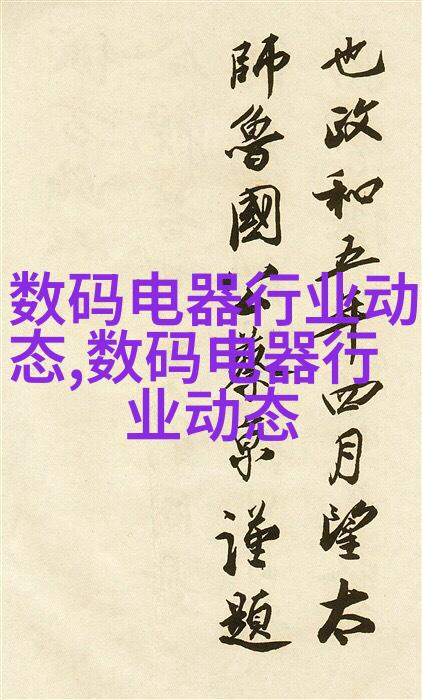 数码电器行业动
态,数码电器行
业动态
也政和五年四月望太
師魯國公蔡京謹題